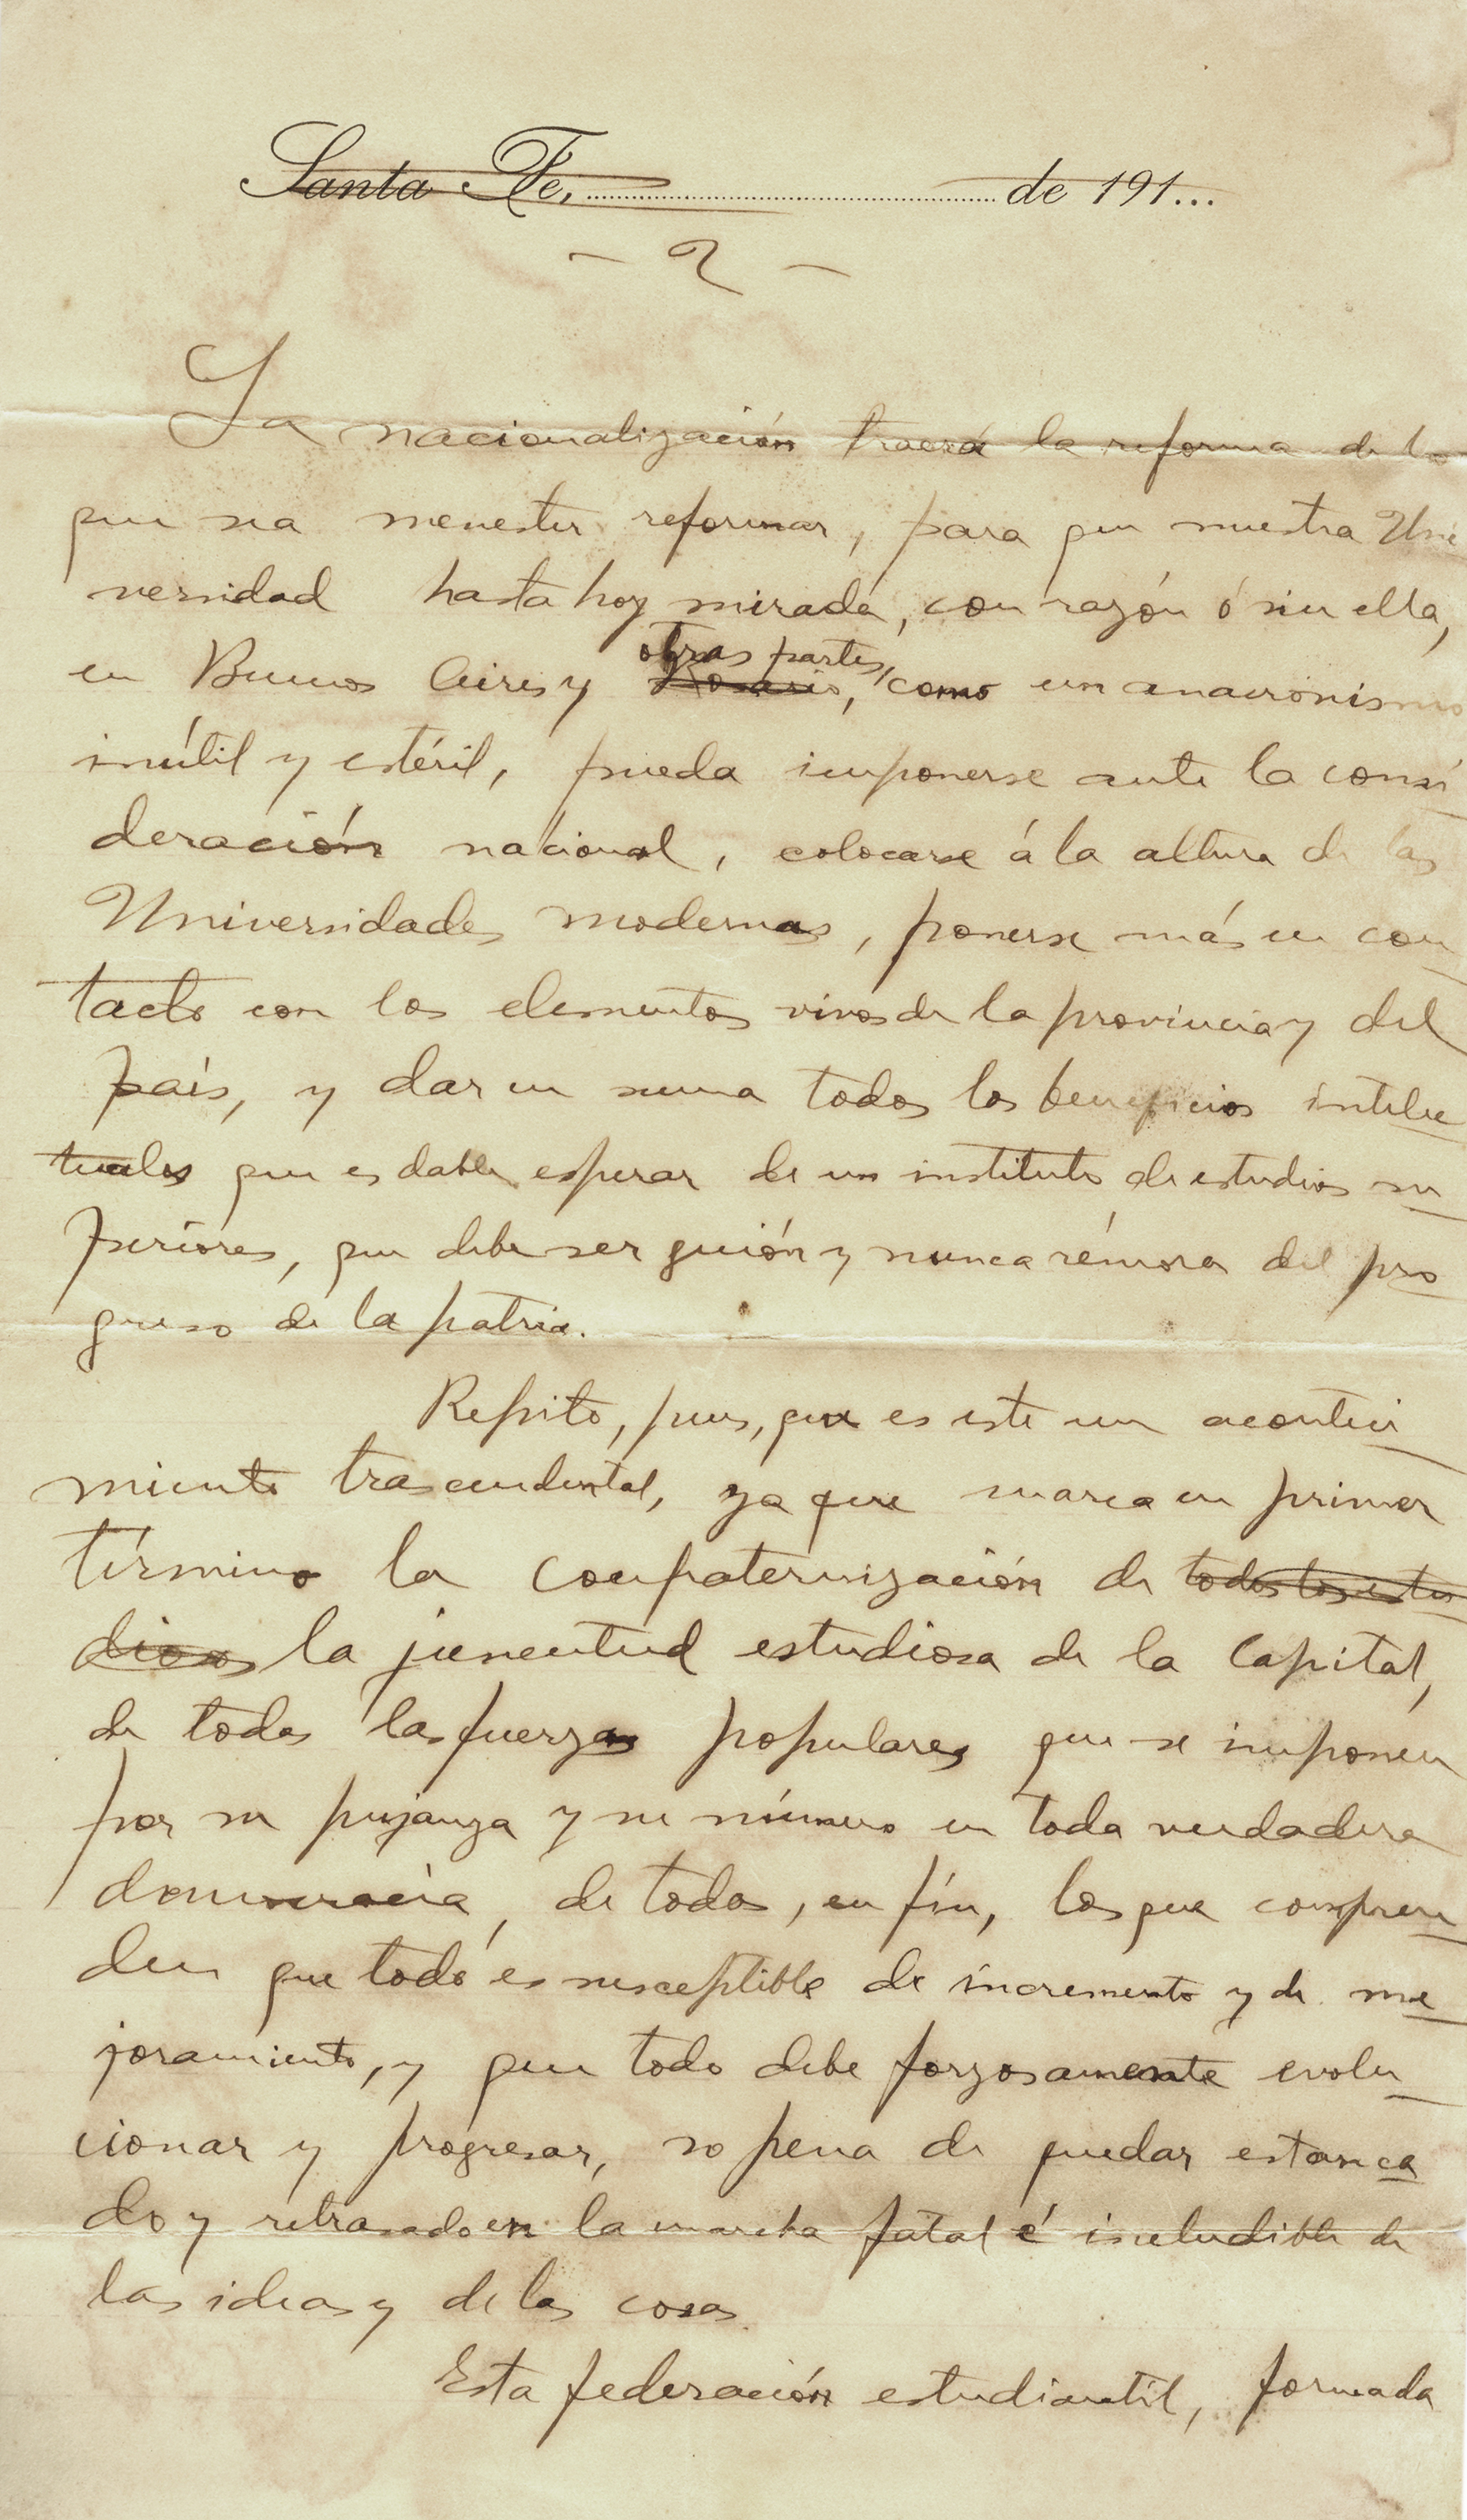 Santa Fe, de 191...
- 2 -
La nacionalización traerá la reforma de lo
que sea menester reformar, para que nuestra Uni
versidad hasta hoy mirada, con razón ó sin ella,
otras partes,
en Buenos Aires y Rosario, como un anacronismo
inútil y estéril, pueda imponerse ante la consi
deración nacional, colocarse á la altura de las
Universidades modernas, ponerse más en con
tacto con los elementos vivos de la provincia y del
país, y dar en suma todos los beneficios intelec
tuales que es dable esperar de un instituto de estudios su
periores, que debe ser guión y nunca rémora del pro
greso de la patria.
Repito, pues, que es este un aconteci
miento trascendental, ya que marca en primer
término la compaternización de todos los estu
dios la juventud estudiosa de la Capital,
de todas las fuerzas populares que se imponen
por su pujanza y su número en toda verdadera
democracia, de todos, en fín, los que compren
den que todo es susceptible de incremento y de me
joramiento, y que todo debe forzosamente evolu
cionar y progresar, so pena de quedar estanca
do y retrasado en la marcha fatal é ineludible de
las ideas y de las cosas.
Esta federación estudiantil, formada